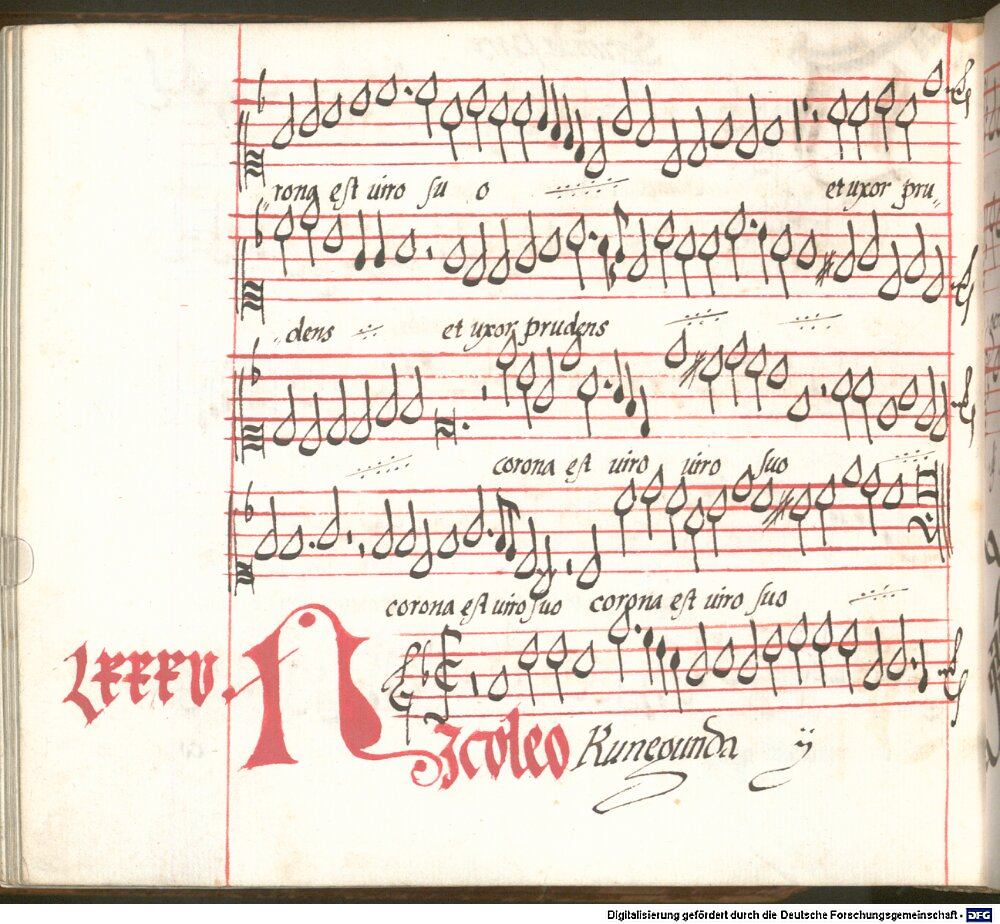 rona est uiro su o et uxor pru„
„dens et uxor prudens
corona est uiro uiro suo
corona est uiro suo corona est uiro suo
LXXXV
Nicoleo Kunegunda ÿ
Digitalisierung gefördert durch die Deutsche Forschungsgemeinschaft - DFG